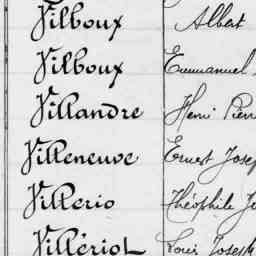 Vilboux Albert
Vilboux Emmanuel
Villandre Henri Pierr
Villeneuve Ernest Josep
Villerio Théophile
Villériot Louis Joseph